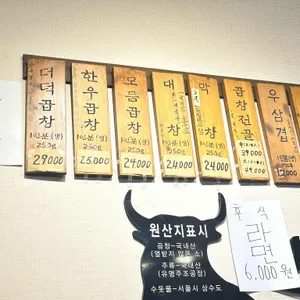 더덕곱창
1인분(생)
250g
29000
한우곱창
1인분(생)
250g
25.000
모듬곱창
1인분(생)
250g
24.000
대창
1인분(생)
250g
24.000
막창
1인분(생)
250g
24.000
곱창전골
39.000
49.000
우삼겹
원산지표시
곱창-국내산
(열받지 않은 소)
주류-국내산
(유명주조공장)
수돗물-서울시 상수도
후식
라면
6.000원